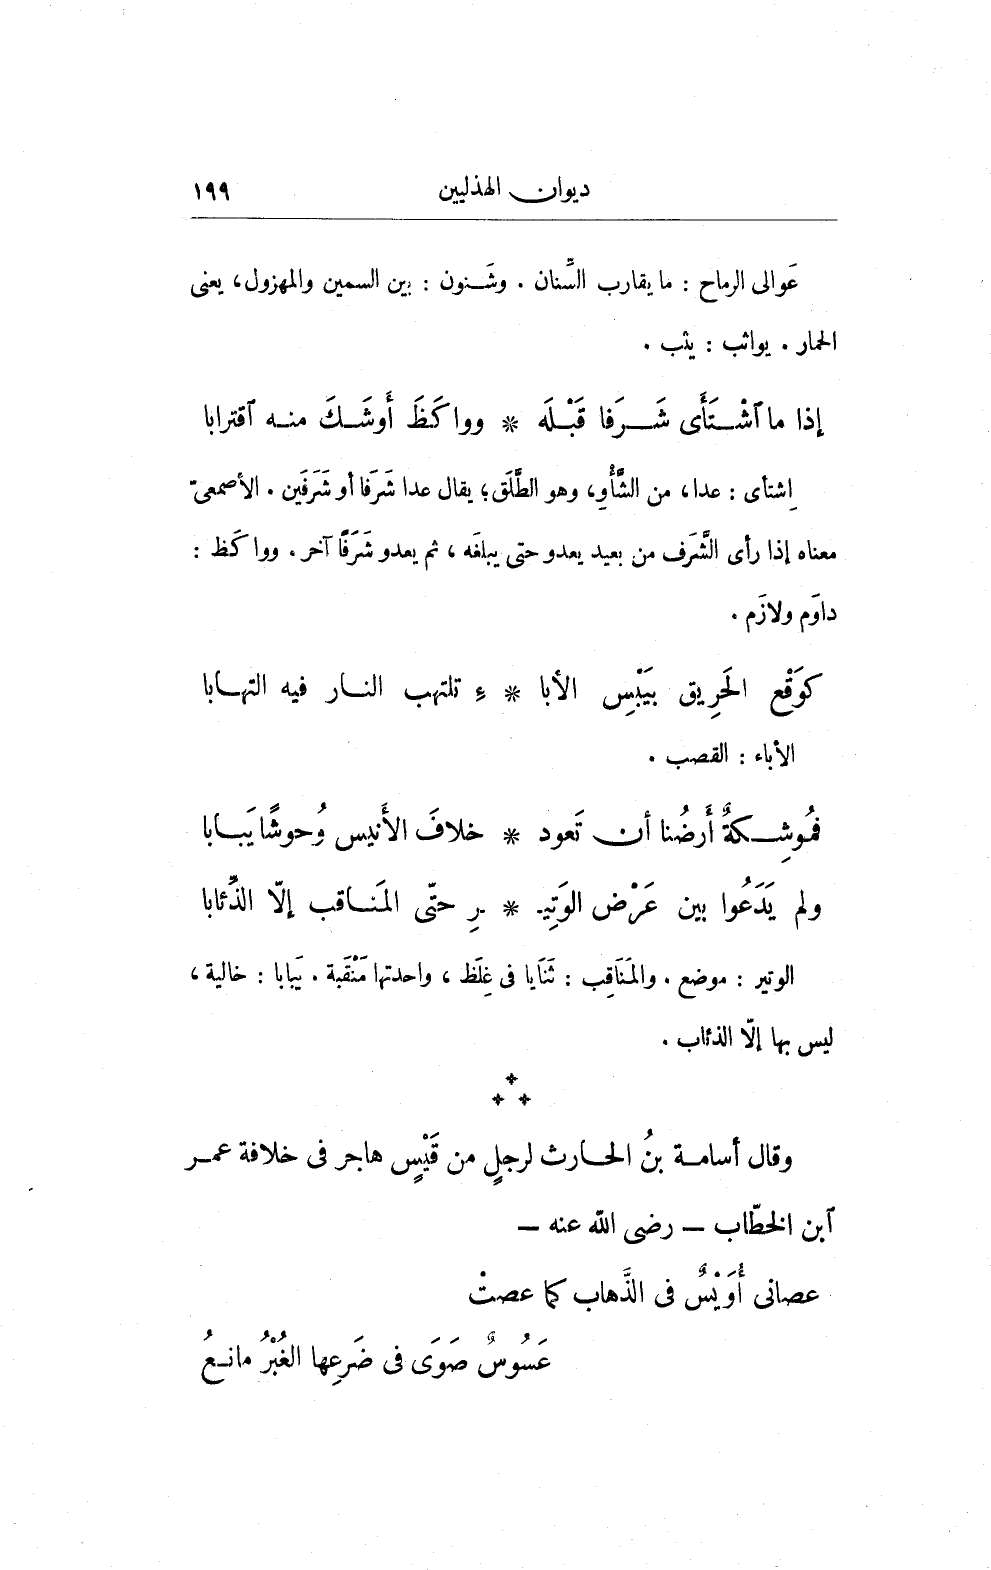 ديوان الهذليين ١٩٩
عَوالى الرماح : ما يقارب السِّنان . وشَنون : بين السمين والمهزول، يعنى
الحمار . يواثب : يثب .
إذا ما ٱشْتَأَى شَرَفا قَبْلَه * وواكَظَ أَوشَكَ منه ٱقترابا
اِشتأى : عدا، من الشَّأْوِ، وهو الطَّلَق؛ يقال عدا شَرَفا أو شَرَفَين . الأصمعىّ
معناه إذا رأى الشَّرَف من بعيد يعدو حتى يبلغَه ، ثم يعدو شَرَفًا آخر . وواكَظ :
داوَم ولازَم .
كوَقْع الحَرِيق بيَبْسِ الأبا * ءِ تلتهب النار فيه التهابا
الأباء : القصب .
فمُوشِكةٌ أَرضُنا أن تَعود * خلافَ الأَنيس وُحوشًا يَبابا
ولم يَدَعُوا بين عَرْض الوَتِيـ * ـرِ حتّى المَناقب إلّا الذِّئابا
الوتير : موضع . والمَنَاقِب : ثَنَايا فى غِلَظ ، واحدتها مَنْقَبة . يَبابا : خالية ،
ليس بها إلّا الذئاب .
وقال أسامة بنُ الحارث لرجلٍ من قَيْسٍ هاجر فى خلافة عمر
ٱبن الخطّاب — رضى الله عنه —
عصانى أُوَيْسٌ فى الذَّهاب كما عصتْ
عَسُوسٌ صَوَى فى ضَرعِها الغُبْرُ مانعُ